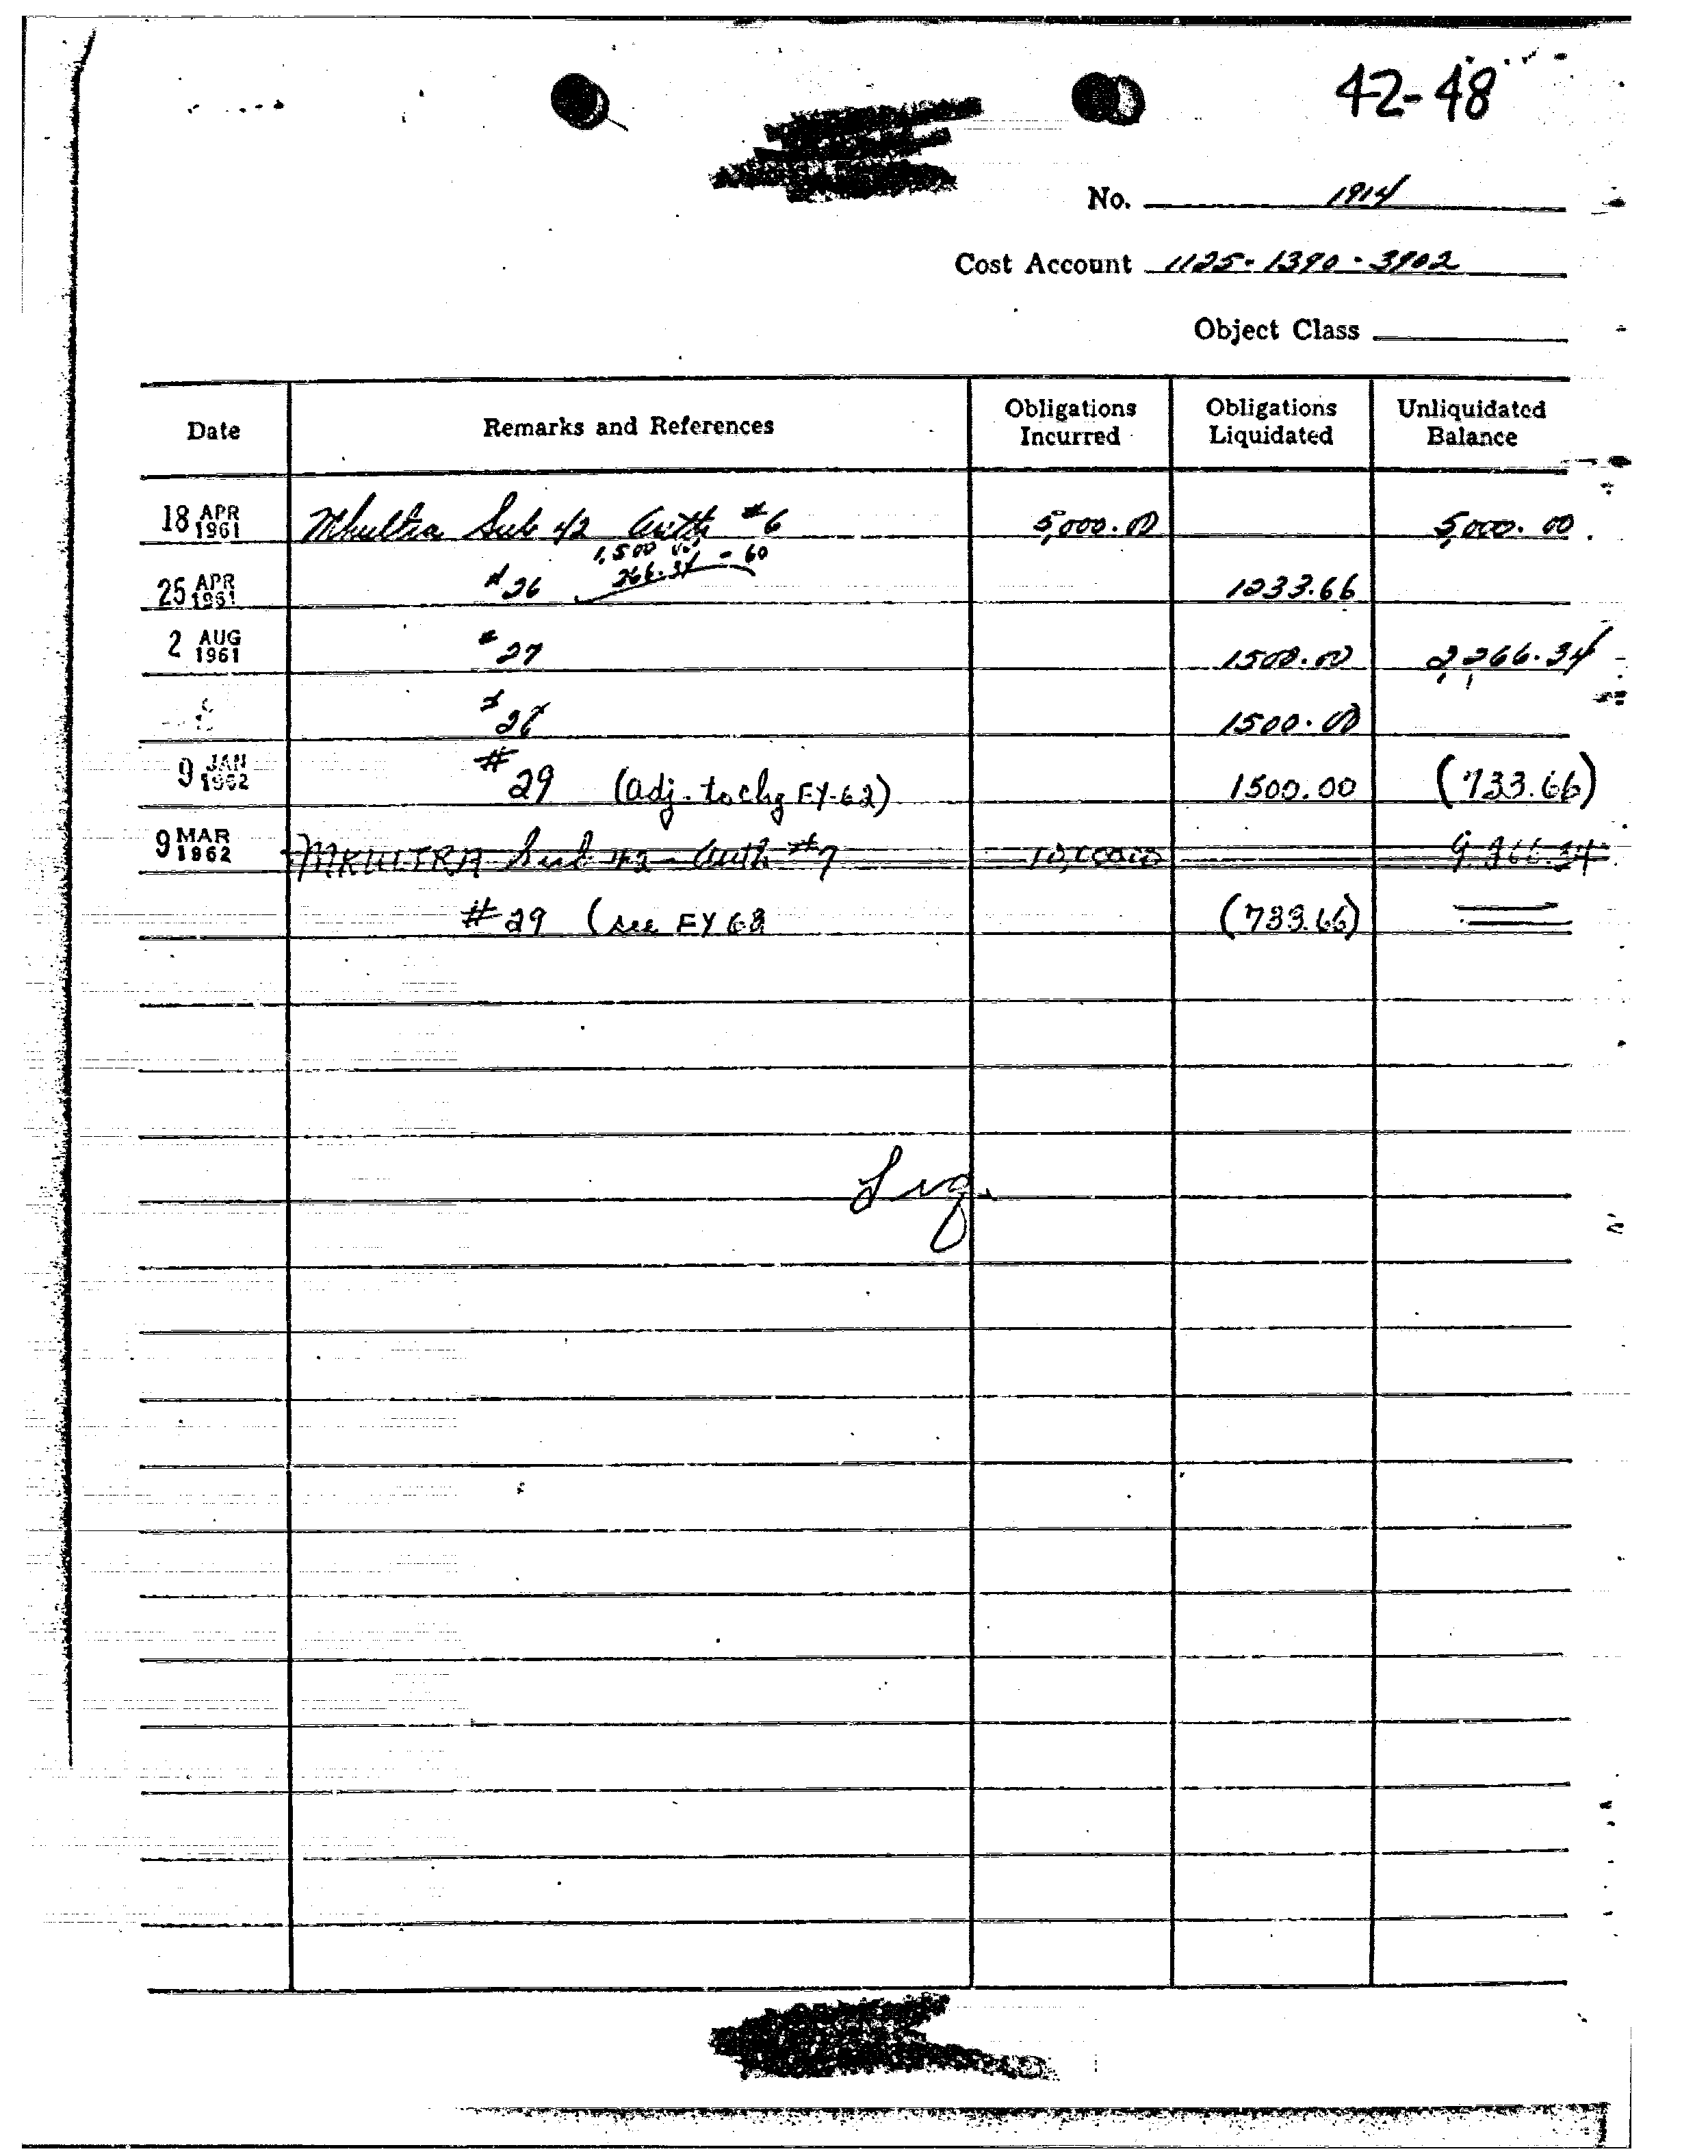 42-48
No. 1914
Cost Account 1125-1390-3902
Object Class
Date Remarks and References Obligations Incurred Obligations Liquidated Unliquidated Balance
18 APR 1961 Mkultra Sub 42 Auth #6 5,000.00 5,000.00
1,500
266.34 - 60
25 APR 1961 #26 1233.66
2 AUG 1961 #27 1500.00 2,266.34
1500.00
9 JAN 1962 #29 (adj. to chg FY-62) 1500.00 (733.66)
9 MAR 1962 MKULTRA Sub 42 - Auth #7
#29 (see FY 62 (733.66)
Liq.